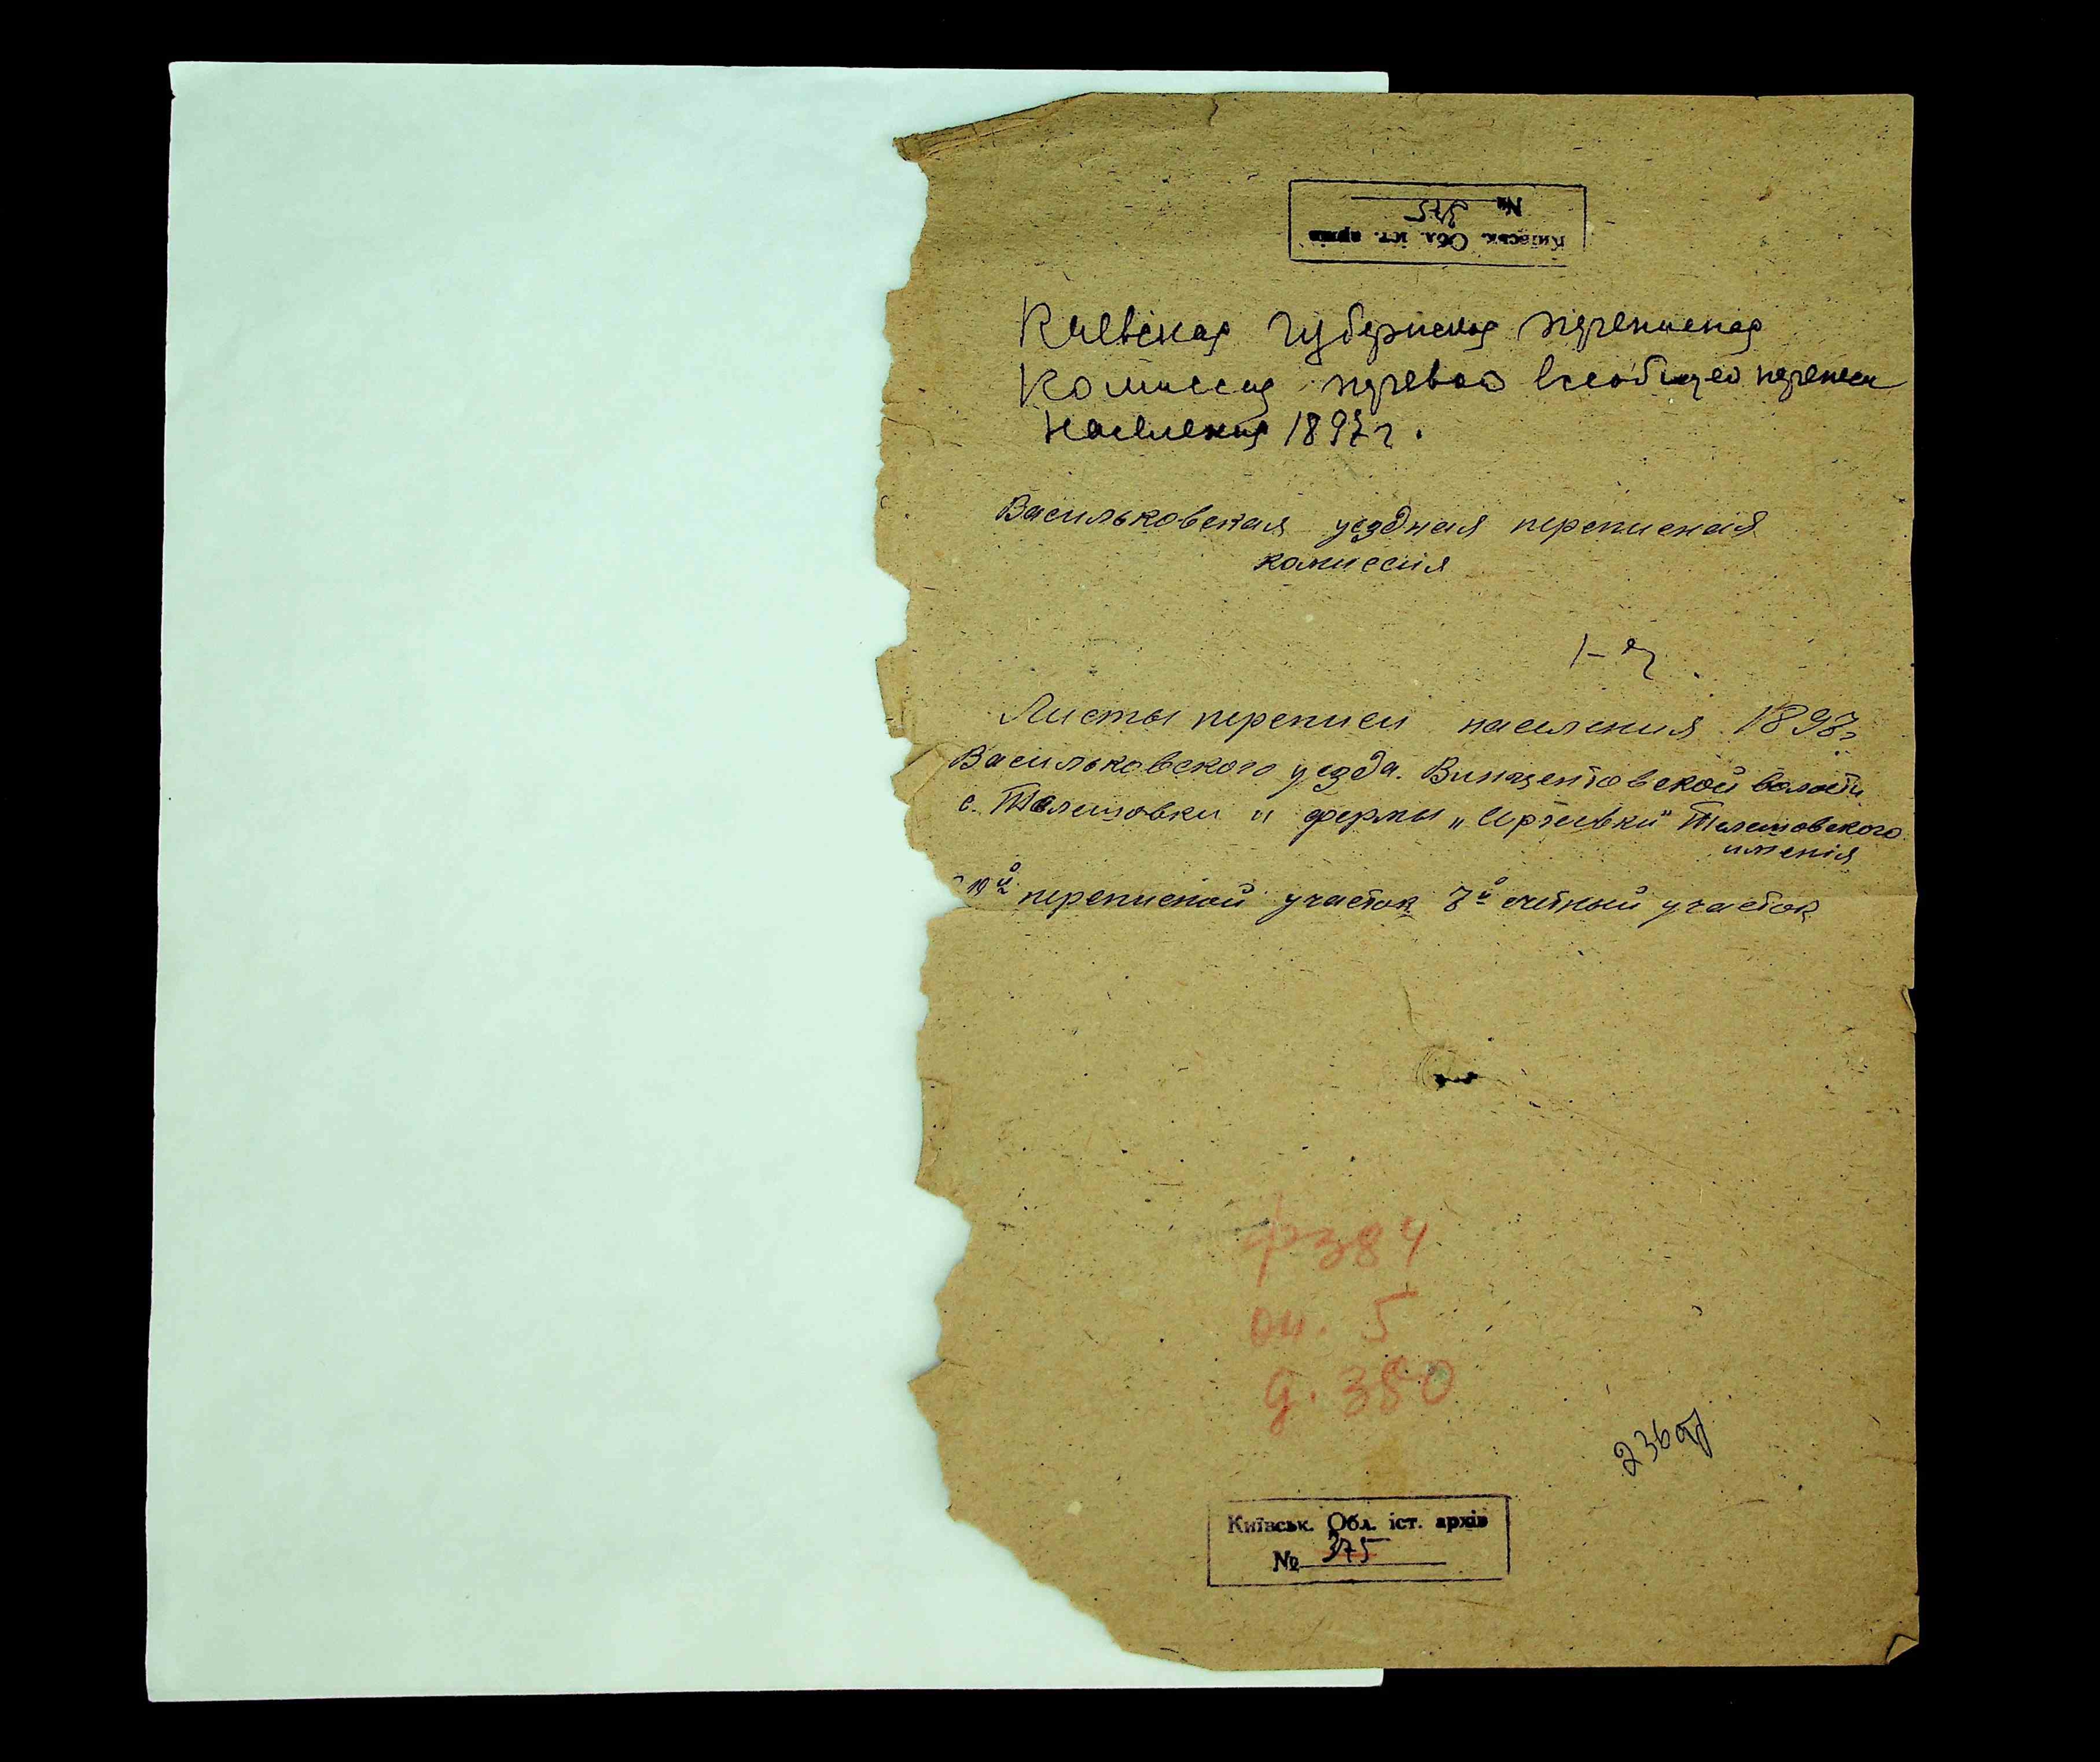 Київськ. Обл. іст. архів
№ 375
Киевская губернская переписная
Комиссия первой всеобщей переписи
населения 1897 г.
Васильковская уездная переписная
комиссия
Листы переписи населения 1897 г.
Васильковского уезда. Винцентовской волости
с. Телешовки и фермы Телешовского
имения
10й переписной участок 7й счетный участок
ф 384
оп. 5
д. 380
Київськ. Обл. іст. архів
№ 375